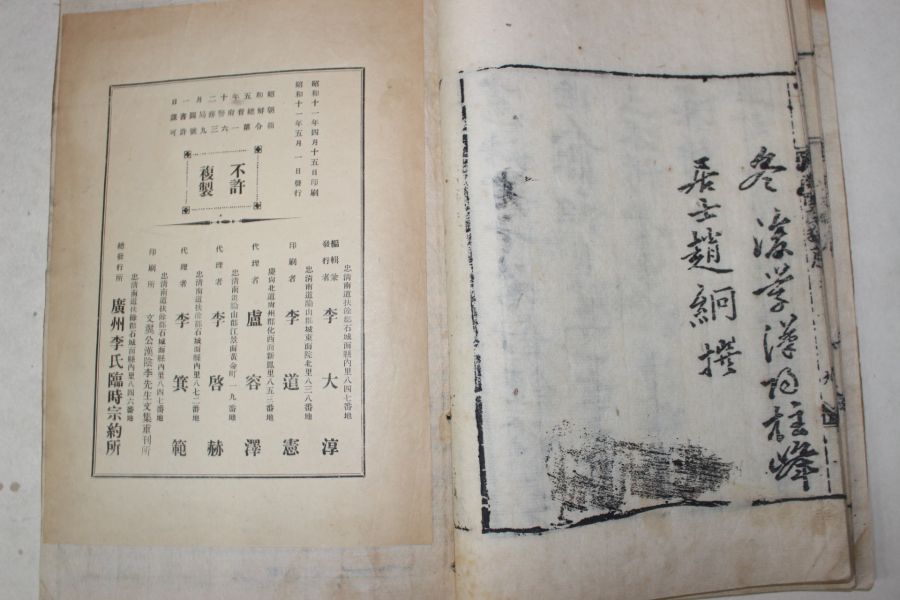 後學漢陽柱峰
居士趙絅撰
昭和十一年四月十五日印刷
昭和十一年五月一日發行
昭和五年十二月一日
朝鮮總督府警務局圖書課
指令第一六三九號許可
不許
複製
忠清南道扶餘郡石城面縣內里八四七番地
編輯兼發行者 李大淳
忠清南道論山郡城東面院北里八三八番地
印刷者 李道憲
慶尙北道尙州郡化西面新鳳里八五三番地
代理者 盧容澤
忠清南道論山郡江景面黃金町一九番地
代理者 李啓赫
忠清南道扶餘郡石城面縣內里八七二番地
代理者 李箕範
忠清南道扶餘郡石城面縣內里八四七番地
印刷所 文翼公漢陰李先生文集重刊所
忠清南道扶餘郡石城面縣內里八四六番地
總發行所 廣州李氏臨時宗約所